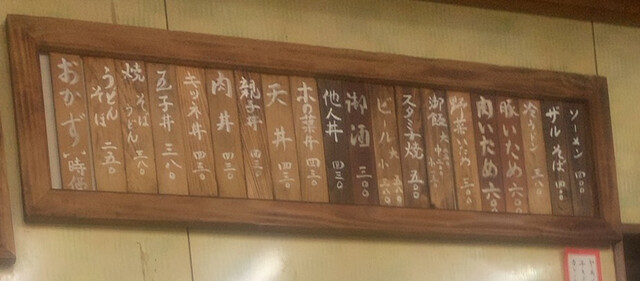 ソーメン 四〇〇
ザルそば 四〇〇
冷うどん 三八〇
豚いため 六〇〇
肉いため 六〇〇
野菜いため 三五〇
御飯 大 中 小
スタミナ焼 五〇〇
ビール 大 小
御酒 三〇〇
他人丼 四三〇
木の葉丼 四三〇
天丼 四三〇
親子丼 四三〇
肉丼 四三〇
キツネ丼 四三〇
玉子丼 三八〇
焼そば うどん 三八〇
うどん そば 二五〇
おかずい 時価